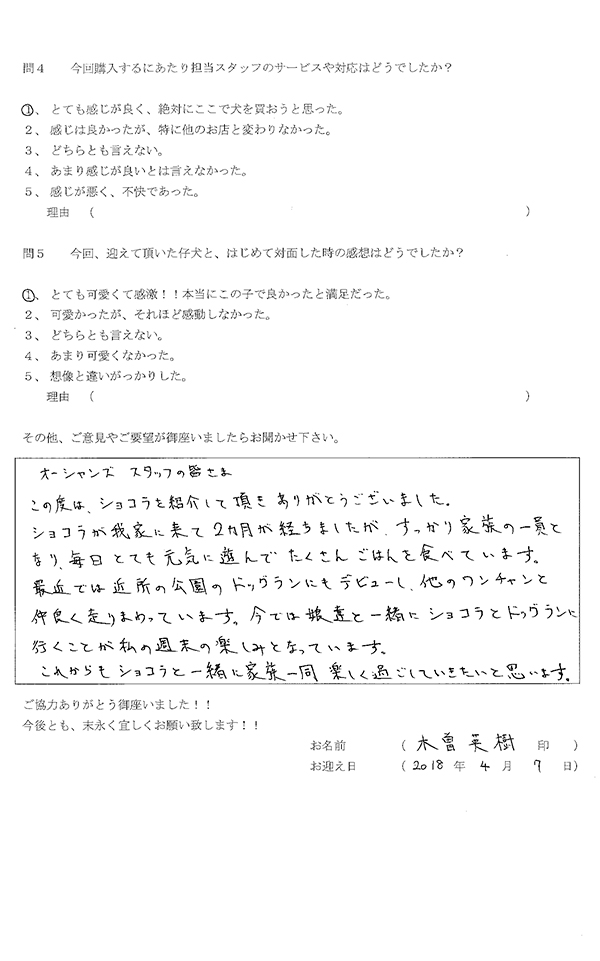 問４　今回購入するにあたり担当スタッフのサービスや対応はどうでしたか？
①、とても感じが良く、絶対にここで犬を買おうと思った。
２、感じは良かったが、特に他のお店と変わりなかった。
３、どちらとも言えない。
４、あまり感じが良いとは言えなかった。
５、感じが悪く、不快であった。
理由　（　　　）
問５　今回、迎えて頂いた仔犬と、はじめて対面した時の感想はどうでしたか？
①、とても可愛くて感激！！本当にこの子で良かったと満足だった。
２、可愛かったが、それほど感動しなかった。
３、どちらとも言えない。
４、あまり可愛くなかった。
５、想像と違いがっかりした。
理由　（　　　）
その他、ご意見やご要望が御座いましたらお聞かせ下さい。
オーシャンズ　スタッフの皆さま
この度は、ショコラを紹介して頂き ありがとうございました。
ショコラが我家に来て２カ月が経ちましたが、すっかり家族の一員と
なり、毎日とても元気に遊んで たくさん ごはんを食べています。
最近では近所の公園のドッグランにもデビューし、他のワンチャンと
仲良く走りまわっています。今では娘達と一緒に ショコラとドッグランに
行くことが私の週末の楽しみとなっています。
これからも ショコラと一緒に家族一同 楽しく過ごしていきたいと思います。
ご協力ありがとう御座いました！！
今後とも、末永く宜しくお願い致します！！
お名前　（　木曽 英樹　印　）
お迎え日　（ 2018 年 4 月 7 日）